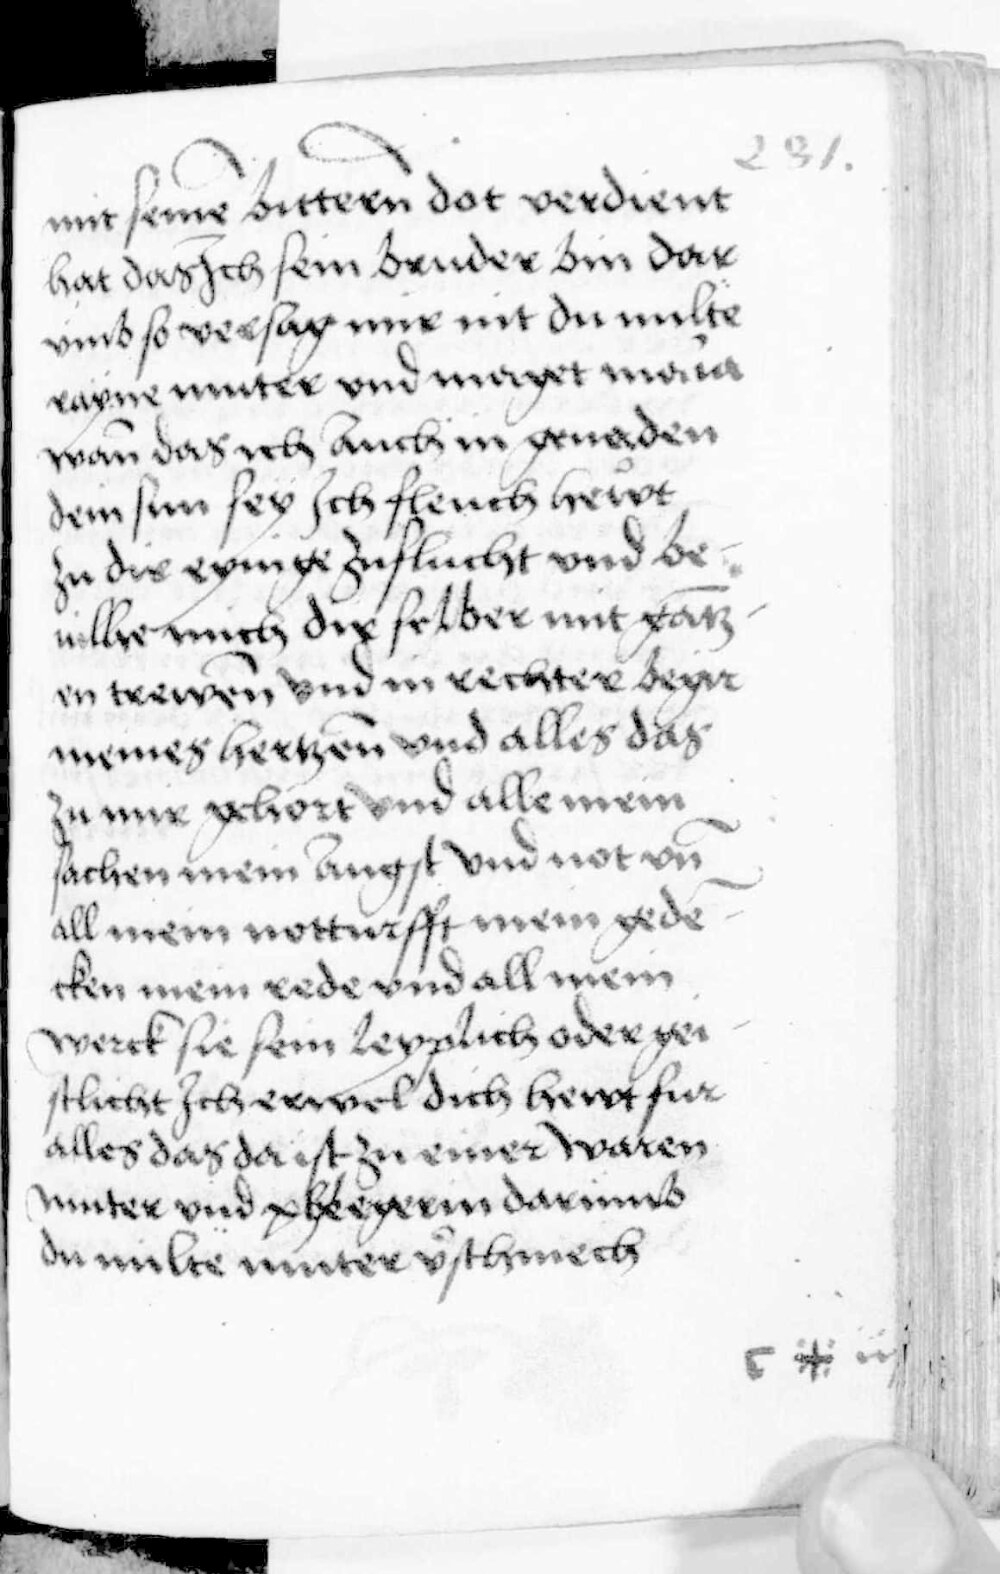 231.
mit seinē bitterñ dot verdient
hat das Ich sein bruder bin dar
vmb so versag mir nit du milte
rayne muter vnd maget maria
wañ das ich auch in genaden
dein sun sey Ich fleuch hewt
zu dir eynige zuflucht vnd be-
uilhe mich dir selber mit gātz-
en trewen̄ vnd in rechter begir
meines hertzen̄ vnd alles das
zu mir gehort vnd alle mein
sachen mein angst vnd not vn̄
all mein notturfft mein gedē-
cken mein rede vnd all mein
werck sie sein leyplich oder gei-
stlicht Ich erwel dich hewt fur
alles das da ist zu einer waren
muter vnd phlegerin darumb
du milte muter
c * iij